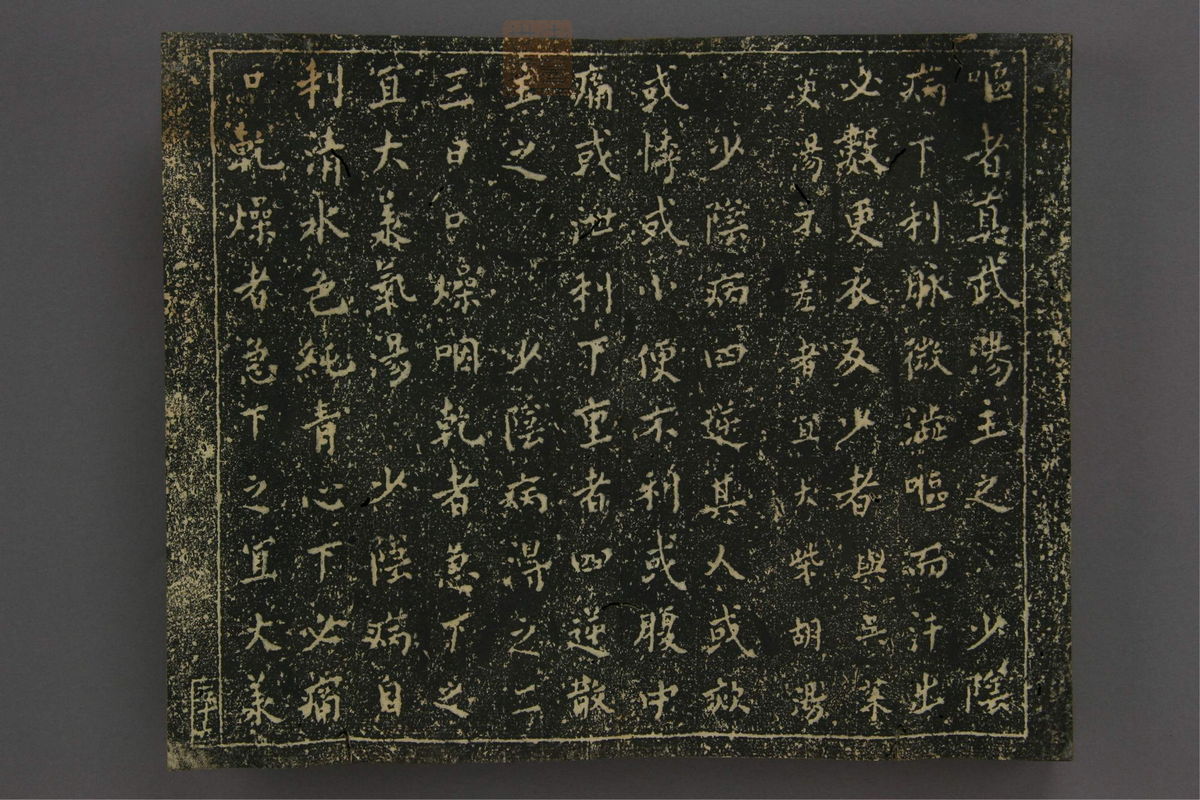 嘔者真武湯主之　少陰
病下利脉微澁嘔而汗出
必數更衣反少者與吳茱
萸湯不差者宜大柴胡湯
少陰病四逆其人或欬
或悸或小便不利或腹中
痛或泄利下重者四逆散
主之　少陰病得之二
三日口燥咽乾者急下之
宜大承氣湯　少陰病自
利清水色純青心下必痛
口乾燥者急下之宜大承